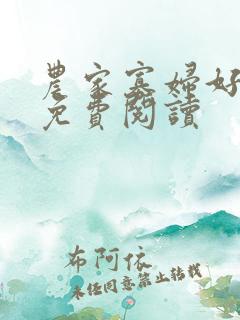 農家寡婦好
免費閱讀
布阿依
未经同意禁止转载